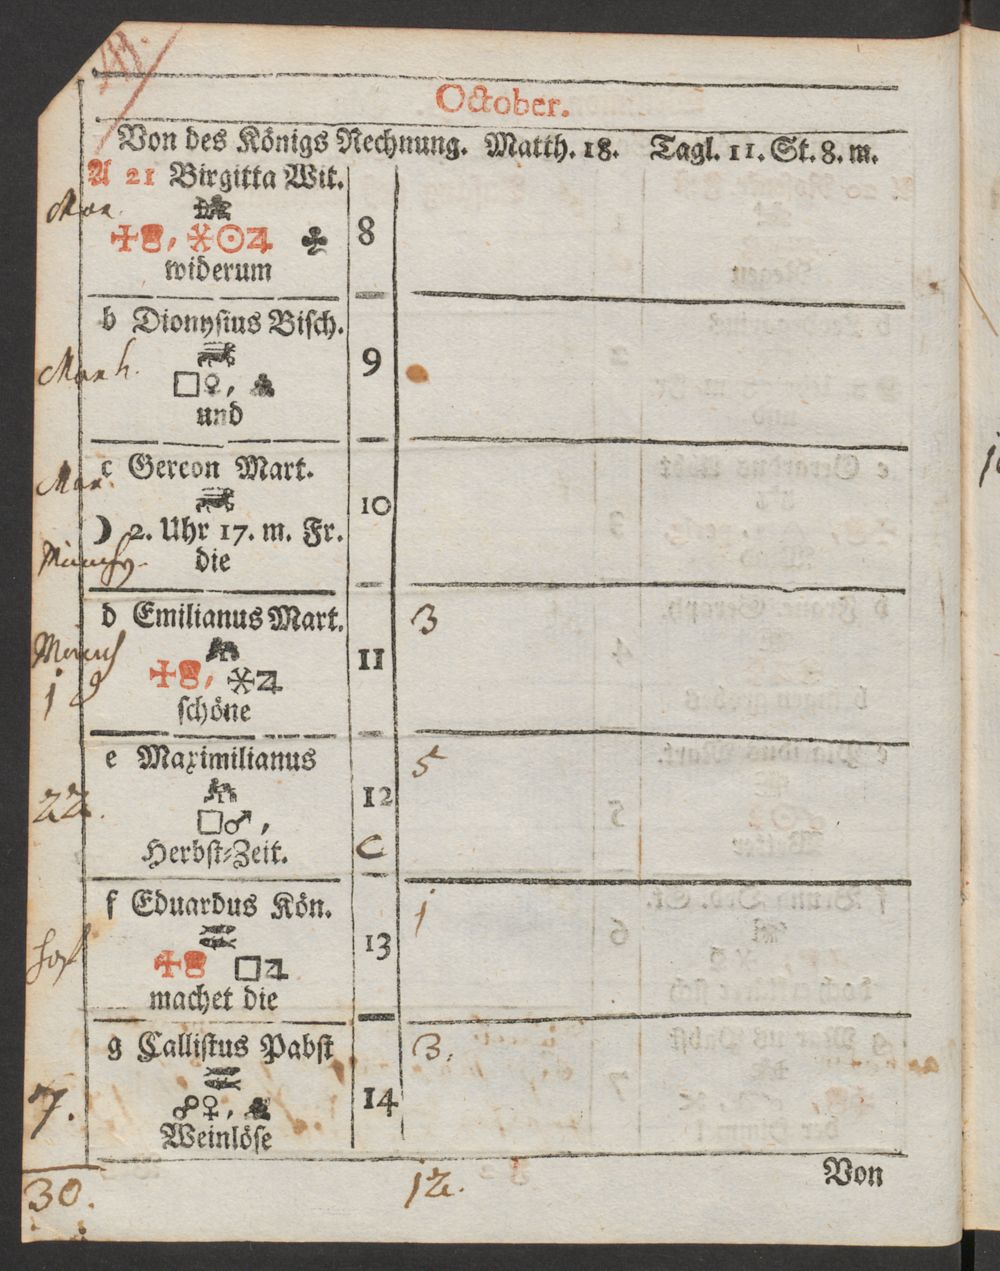 October.
Von des Königs Rechnung. Matth. 18. Tagl. 11. St. 8. m.
A 21 Birgitta Wit.
8
widerum
b Dionysius Bisch.
□♀,
9
und
c Gereon Mart.
10
☽ 2. Uhr 17. m. Fr.
die
d Emilianus Mart.
3
11
schöne
e Maximilianus
5
22.
12
□♂,
Herbst-Zeit.
C
f Eduardus Kön.
1
13
□♃
machet die
g Callistus Pabst
3.
7.
☍♀,
14
Weinlöse
Von
30.
12.